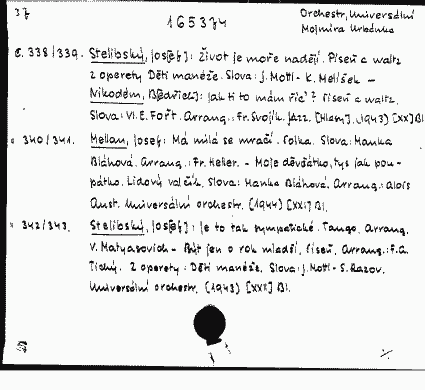 37
165374
Orchestr, Universální
Mojmíra Urbánka
č. 338/339. Stelibský, Jos[ef]: Život je moře nadějí. Píseň a waltz
z operety Děti manéže. Slova: J. Mottl - K. Melíšek -
Nikodém, B[edřich]: Jak ti to mám říc'? Píseň a waltz.
Slova: Vl. E. Fořt. Arrang.: Fr. Svojík. Jazz. [Hlem]. (1943) [XX] Bl.
č 340/341. Mellan, Josef: Má milá se mračí. Polka. Slova: Hanka
Bláhová. Arrang.: Fr. Heller. - Moje děvčátko, tys jak pou-
pátko. Lidový valčík. Slova: Hanka Bláhová. Arrang.: Alois
Aust. Universální orchestr. (1944) [XXI] Bl.
č 342/343. Stelibský, Jos[ef]: Je to tak sympatické. Tango. Arrang.
V. Matyasovich - Být jen o rok mladší, Píseň. Arrang.: F.A.
Tichý. Z operety: Děti manéže. Slova: J. Mottl - S. Razov.
Universální orchestr. (1943) [XXII] Bl.